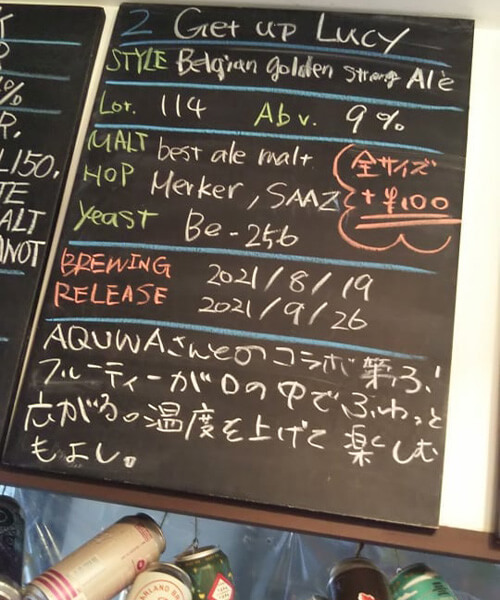 2 Get up Lucy
STYLE Belgian golden strong Ale
Lot. 114 Abv. 9%
MALT best ale malt
HOP Merker, SAAZ
Yeast Be-256
全サイズ
+¥100
BREWING 2021/8/19
RELEASE 2021/9/26
AQUWAさんとのコラボ第
フルーティーが口の中でふわっと
広がる。温度を上げて楽しむ
もよし。
%
R,
L150,
TE
ALT
ANOT